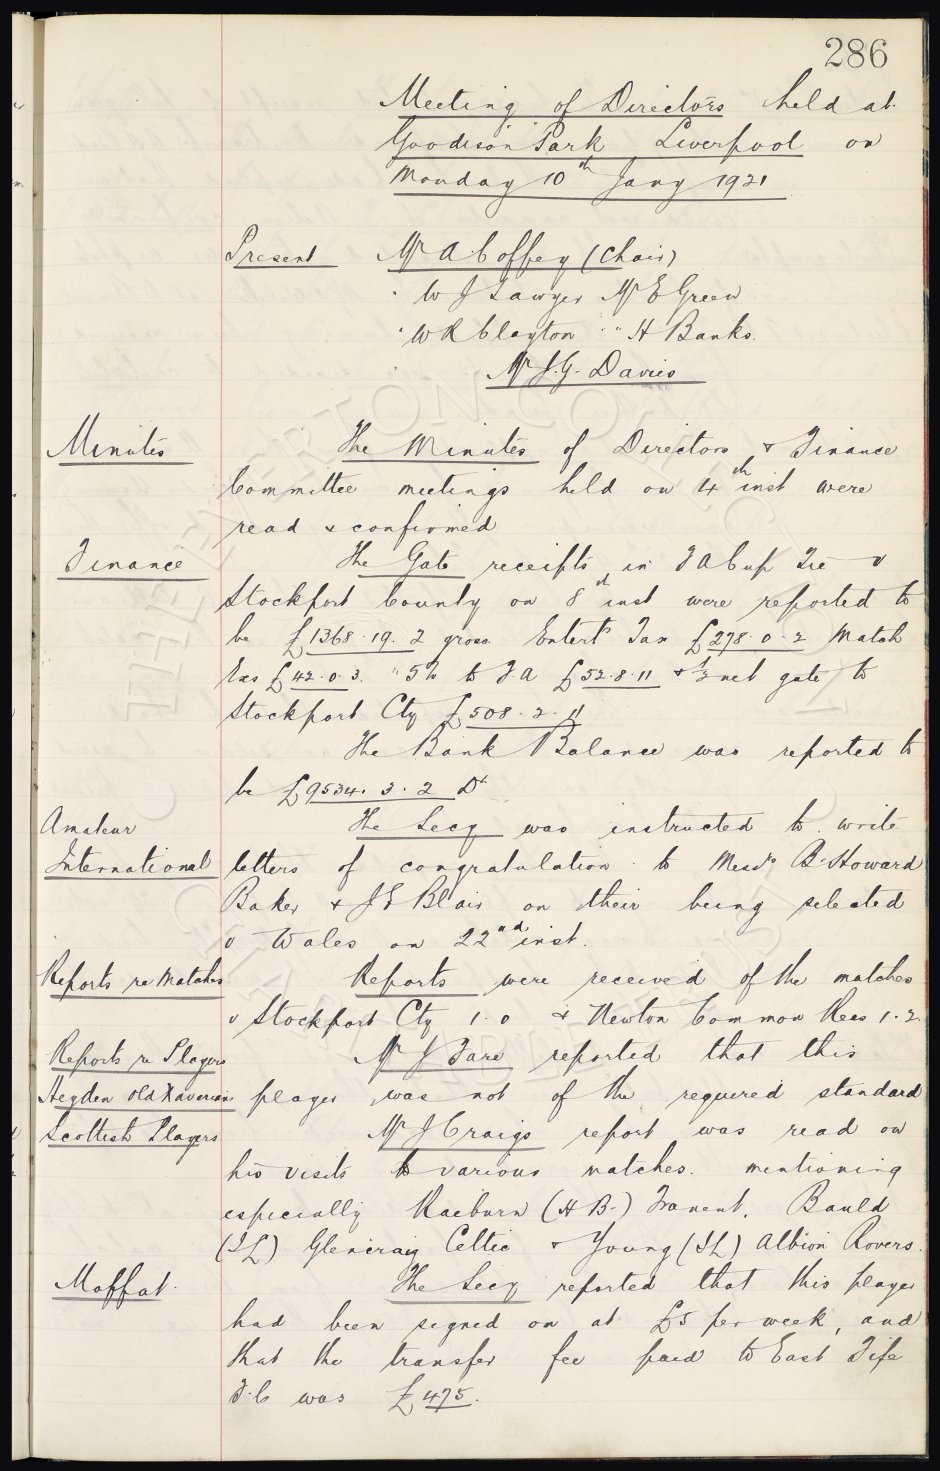 286
Meeting of Directors held at
Goodison Park Liverpool on
Monday 10th Jany 1921
Present Mr A Coffey (Chair)
" W J Sawyer Mr E Green
" W R Clayton " H Banks.
Mr J. G. Davies
Minutes The Minutes of Directors & Finance
Committee meetings held on 4th inst were
read & confirmed
Finance The Gate receipts in F A Cup Tie v
Stockport County on 8th inst were reported to
be £1368.19.2 gross Entert's Tax £278.0.2 Match
Exs £42.0.3. 5% to F.A £52.8.11 & ½ net gate to
Stockport Cty £508.2.11
The Bank Balance was reported to
be £9534.3.2 Dr
Amateur The Secy was instructed to write
International letters of congratulation to Messrs B. Howard
Baker & J E Blair on their being selected
v Wales on 22nd inst.
Reports re Matches Reports were received of the matches
v Stockport Cty 1.0 & Newton Common Recs 1.2.
Reports re Players Mr J Fare reported that this
Heyden Old Xaverians player was not of the required standard
Scottish Players Mr J Craigs report was read on
his visits to various matches. mentioning
especially Raeburn (H B.) Tranent, Bauld
(I L) Glencraig Celtic & Young (I L) Albion Rovers.
Moffat. The Secy reported that this player
had been signed on at £5 per week, and
that the transfer fee paid to East Fife
F.C was £475.